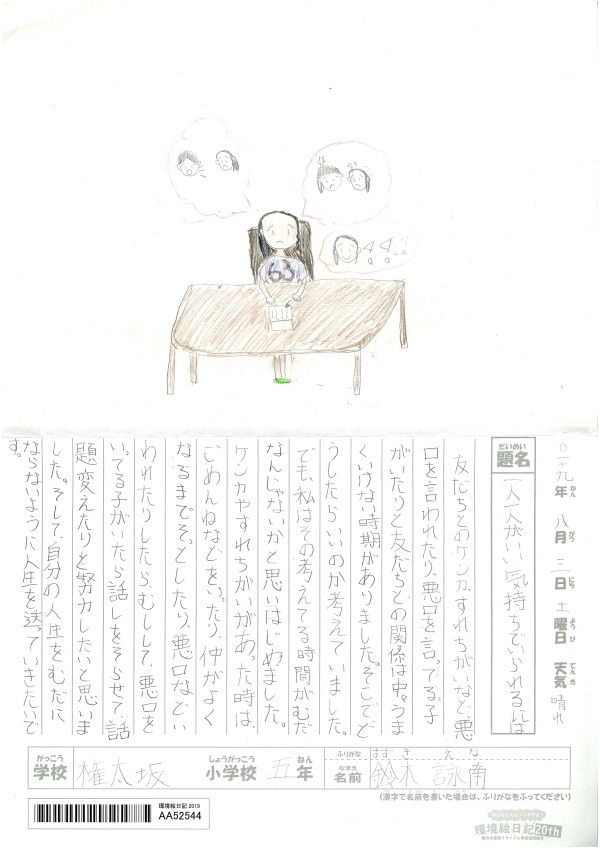 63
二〇一九年 八月 三一日 土曜日 天気 晴れ
ねん がつ にち ようび てんき
だいめい
題名
一人一人がいい気持ちでいられるには
友だちとのケンカ、すれちがいなど、悪
口を言われたり、悪口を言ってる子
がいたりと友だちとの関係は中々うま
くいけない時期がありました。そこでど
うしたらいいのか考えていました。
でも、私はその考えてる時間がむだ
なんじゃないかと思いはじめました。
ケンカやすれちがいがあった時は、
ごめんねなどをいったり、仲がよく
なるまでそっとしたり、悪口などい
われたりしたら、むしして、悪口を
いってる子がいたら話しをそらせて、話
題変えたりと努力したいと思いま
した。そして、自分の人生をむだに
ならないように人生を送っていきたいで
す。
がっこう しょうがっこう ねん
学校 権太坂 小学校 五年
ふりがな すずき えな
なまえ
名前 鈴木 詠南
(漢字で名前を書いた場合は、ふりがなをふってください)
環境絵日記 2019
AA52544
環境絵日記 20th